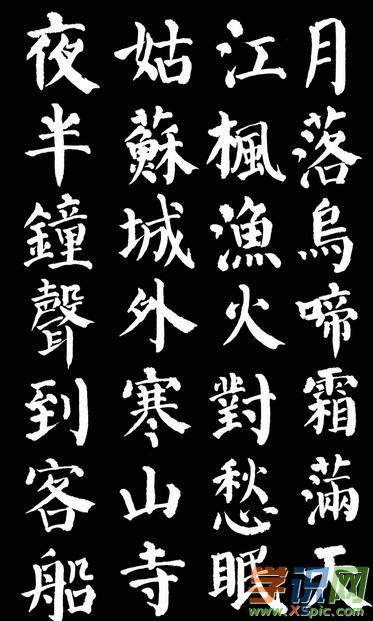 月落烏啼霜滿天
江楓漁火對愁眠
姑蘇城外寒山寺
夜半鐘聲到客船
学识网
www.XSpic.com